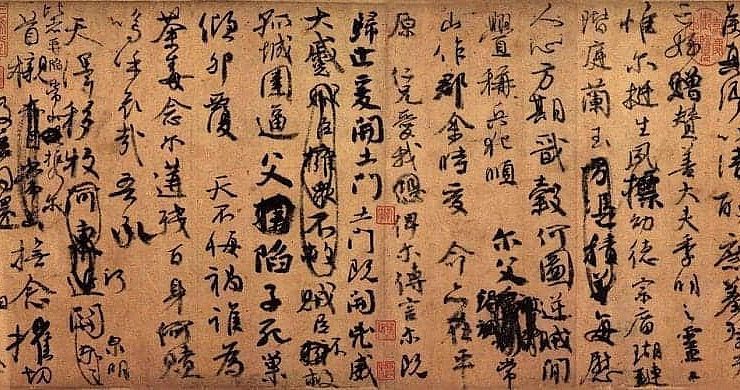 真卿以清酌庶羞
亡姪贈贊善大夫季明之靈
惟爾挺生夙標幼德宗廟瑚璉
階庭蘭玉方憑積善每慰
人心方期戩穀何圖逆賊間
釁稱兵犯順爾父竭誠常
山作郡余時受命亦在平
原仁兄愛我恐俾爾傳言爾既
歸止爰開土門土門既開凶威
大蹙賊臣擁衆不救賊臣不救
孤城圍逼父陷子死巢
傾卵覆天不悔禍誰為
荼毒念爾遘殘百身何贖
嗚呼哀哉吾承
天澤移牧河東近關泉明
比者再陷常山攜爾
首櫬及茲同還撫念摧切